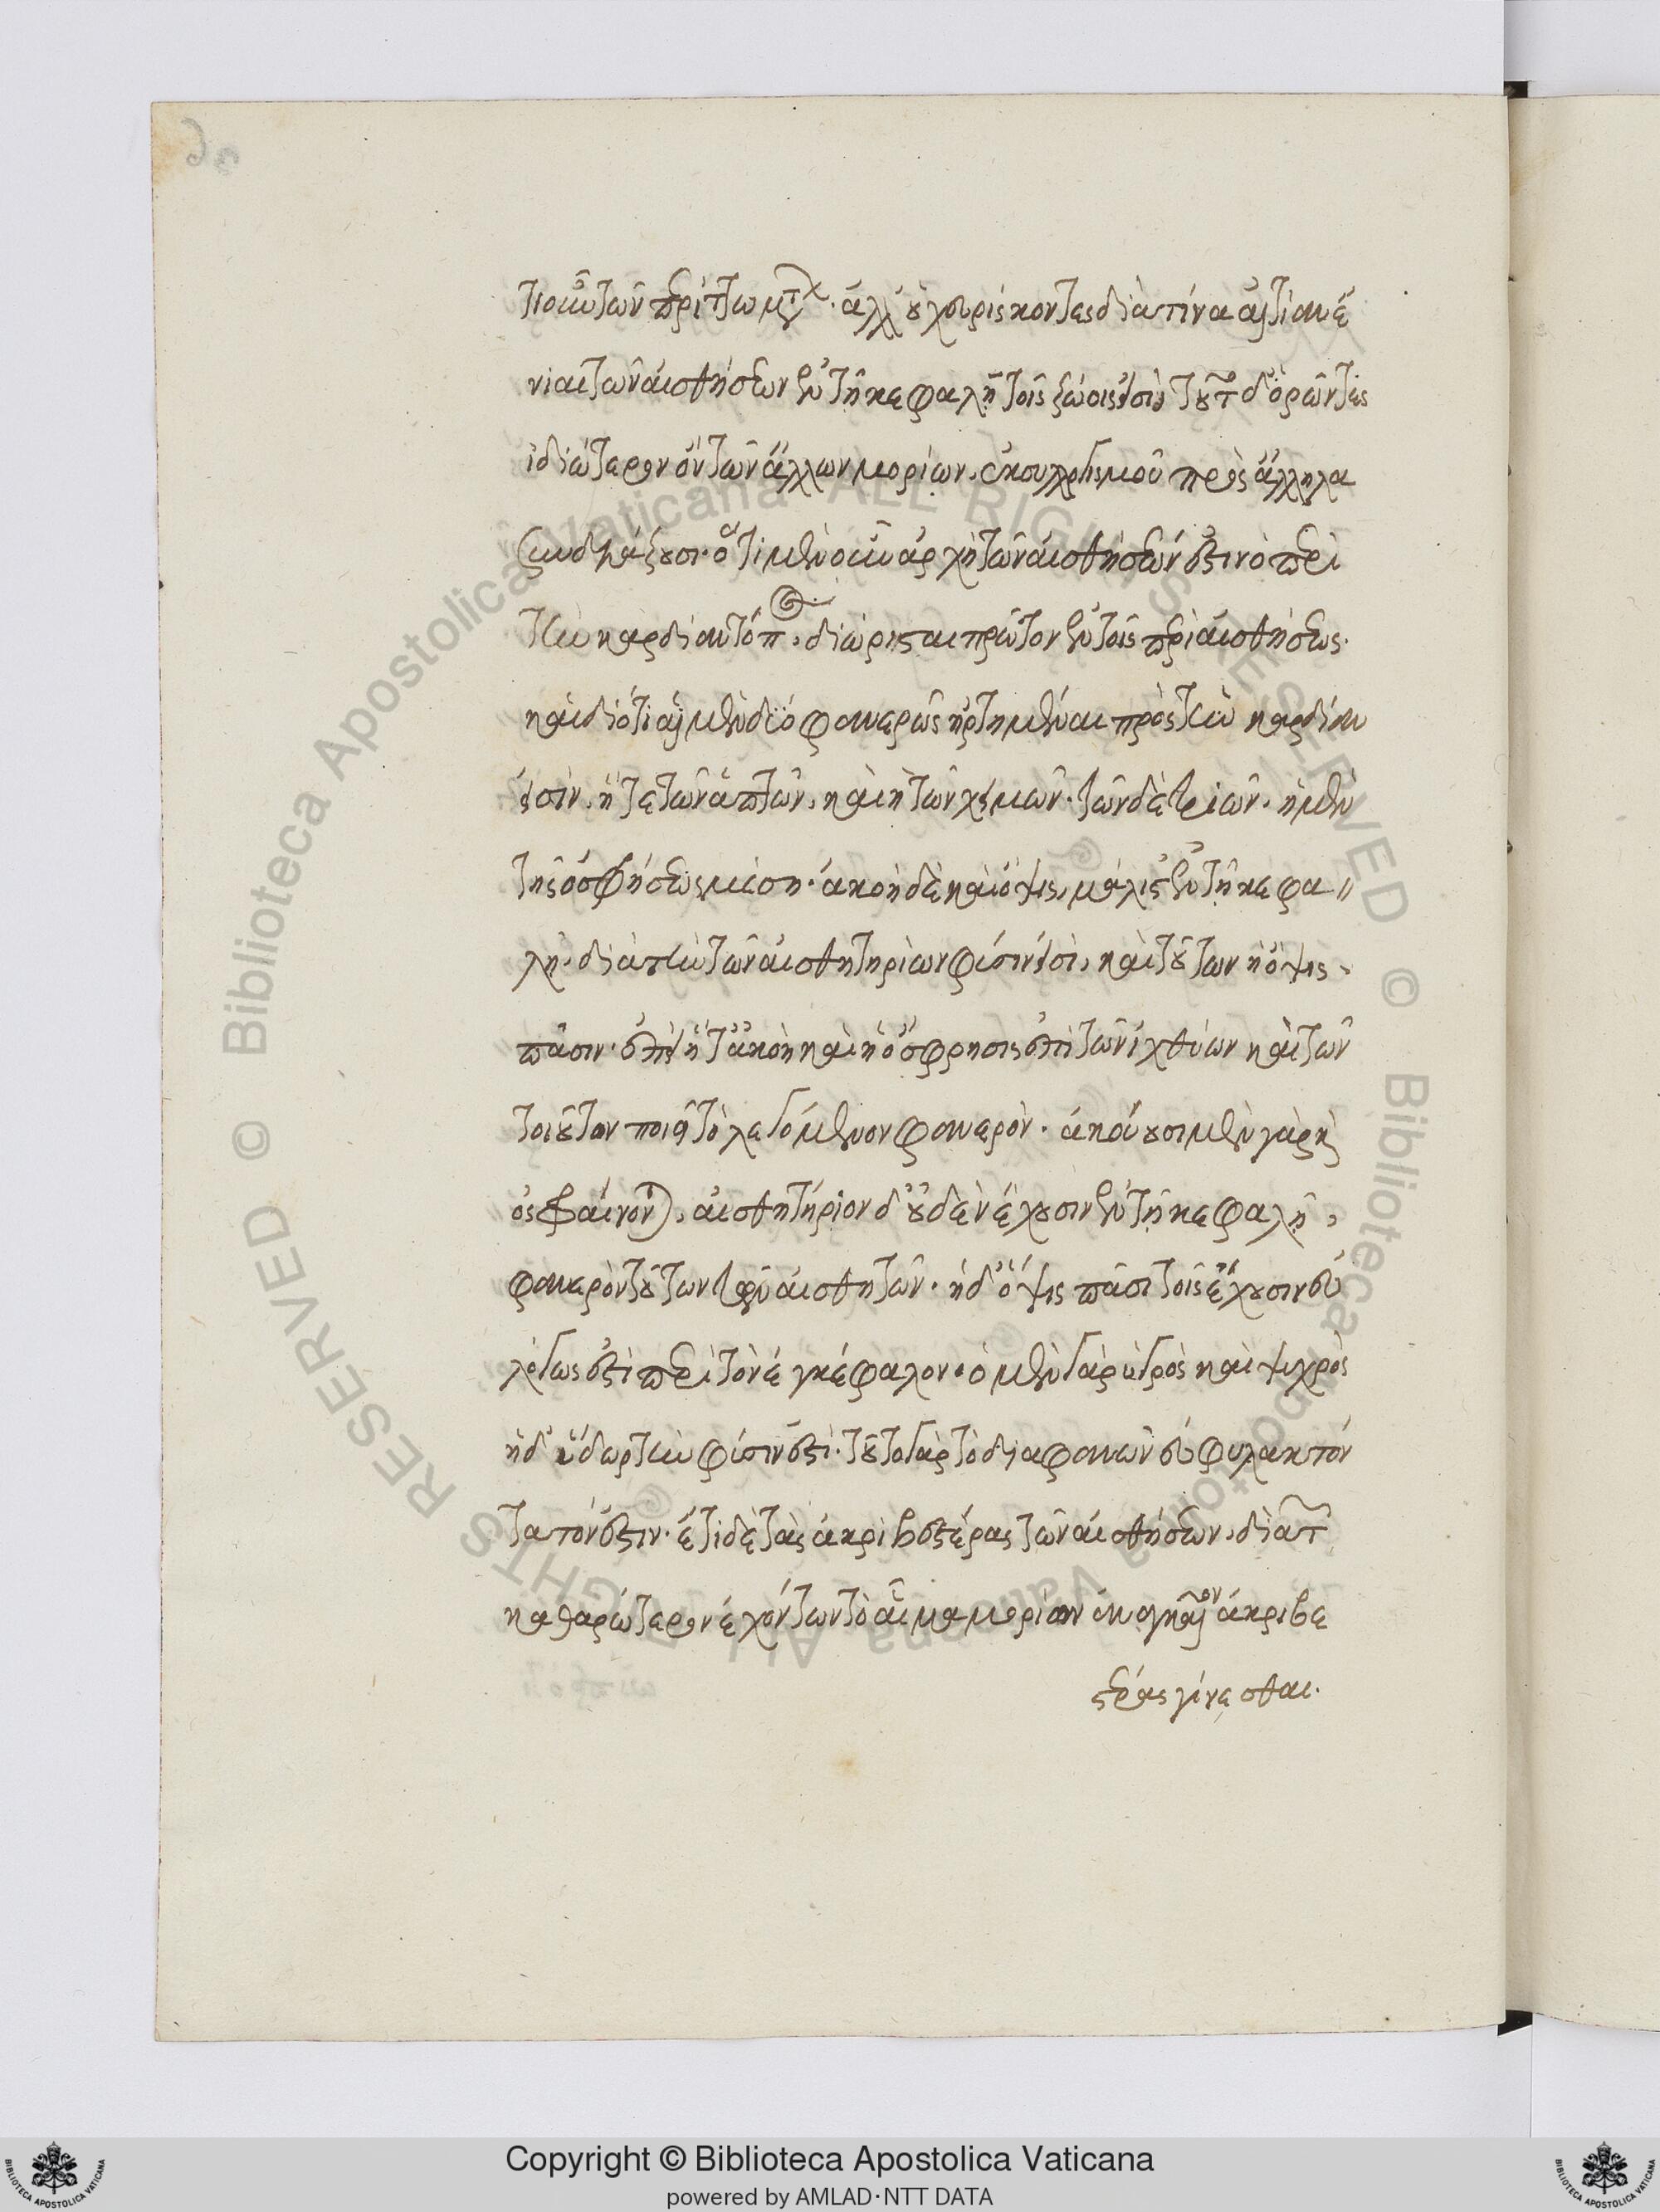 τιοκοῦν τῶν περιττωμάτων. ἀλλ' οὐχ εὑρίσκοντες διὰ τίνα αἰτίαν ἔ
νιαι τῶν αἰσθήσεων ἐν τῇ κεφαλῇ τοῖς ζῴοις εἰσί, τοῦτο δ' ὁρῶντες
ἰδιώτερον ὂν τῶν ἄλλων μορίων, ἐκ συλλογισμοῦ πρὸς ἄλληλα
συνδυάζουσι. ὅτι μὲν οὖν ἀρχὴ τῶν αἰσθήσεών ἐστιν ὁ περὶ
τὴν καρδίαν τόπος, διώρισται πρῶτον ἐν τοῖς περὶ αἰσθήσεως.
καὶ διότι αἱ μὲν δύο φανερῶς ἠρτημέναι πρὸς τὴν καρδίαν
εἰσίν, ἥ τε τῶν ἁπτῶν, καὶ ἡ τῶν χυμῶν. τῶν δὲ τριῶν, ἡ μὲν
τῆς ὀσφρήσεως μέση. ἀκοὴ δὲ καὶ ὄψις, μάλιστ' ἐν τῇ κεφα
λῇ. διὰ τὴν τῶν αἰσθητηρίων φύσιν εἰσὶ, καὶ τούτων ἡ ὄψις,
πᾶσιν. ἐπεὶ ἥ τ' ἀκοὴ καὶ ἡ ὄσφρησις ἐπὶ τῶν ἰχθύων καὶ τῶν
τοιούτων ποιεῖ τὸ λεγόμενον φανερὸν. ἀκούουσι μὲν γὰρ καὶ
ὀσφραίνονται, αἰσθητήριον δ' οὐδὲν ἔχουσιν ἐν τῇ κεφαλῇ,
φανερὸν τούτων τῶν αἰσθητῶν. ἡ δ' ὄψις πᾶσι τοῖς ἔχουσιν εὐ
λόγως ἐστὶ περὶ τὸν ἐγκέφαλον. ὁ μὲν γὰρ ὑγρὸς καὶ ψυχρὸς
ἡ δ' ὕδωρ τὴν φύσιν ἐστί. τοῦτο γὰρ τὸ διαφανῶν εὐφυλακτόν
τατόν ἐστιν. ἔτι δὲ τὰς ἀκριβεστέρας τῶν αἰσθήσεων, διὰ τῶν
καθαρώτερον ἐχόντων τὸ αἷμα μορίων ἀναγκαῖον ἀκριβε
στέρας γίνεσθαι.
Copyright © Biblioteca Apostolica Vaticana
powered by AMLAD·NTT DATA